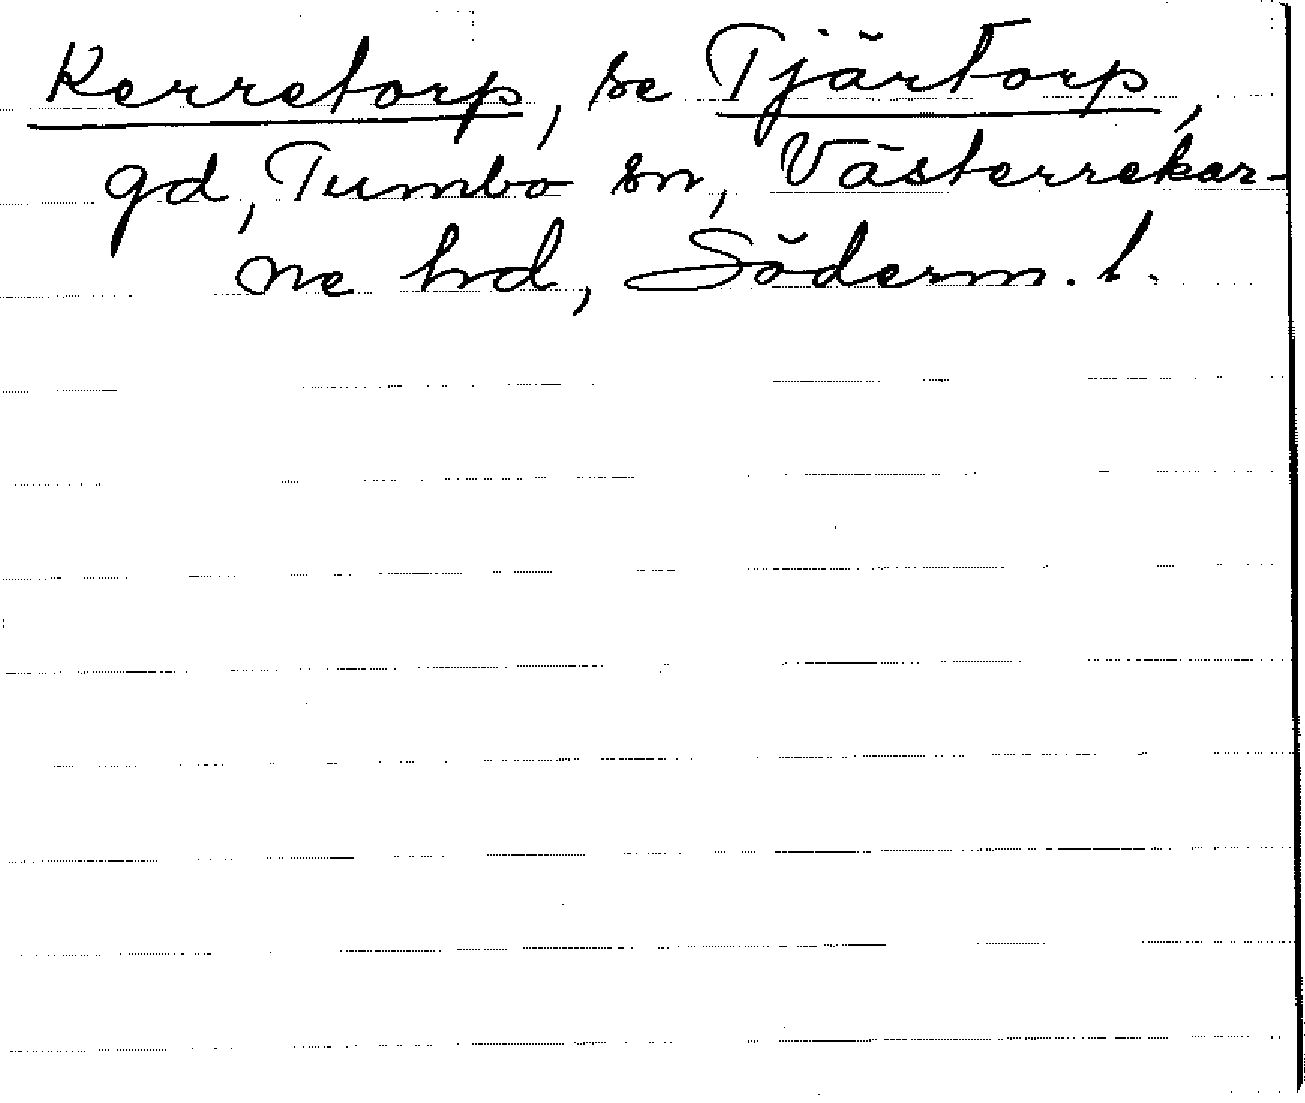 Kerretorp, se Tjärtorp,
gd, Tumbo sn, Västerrekar-
ne hd, Söderm. l.